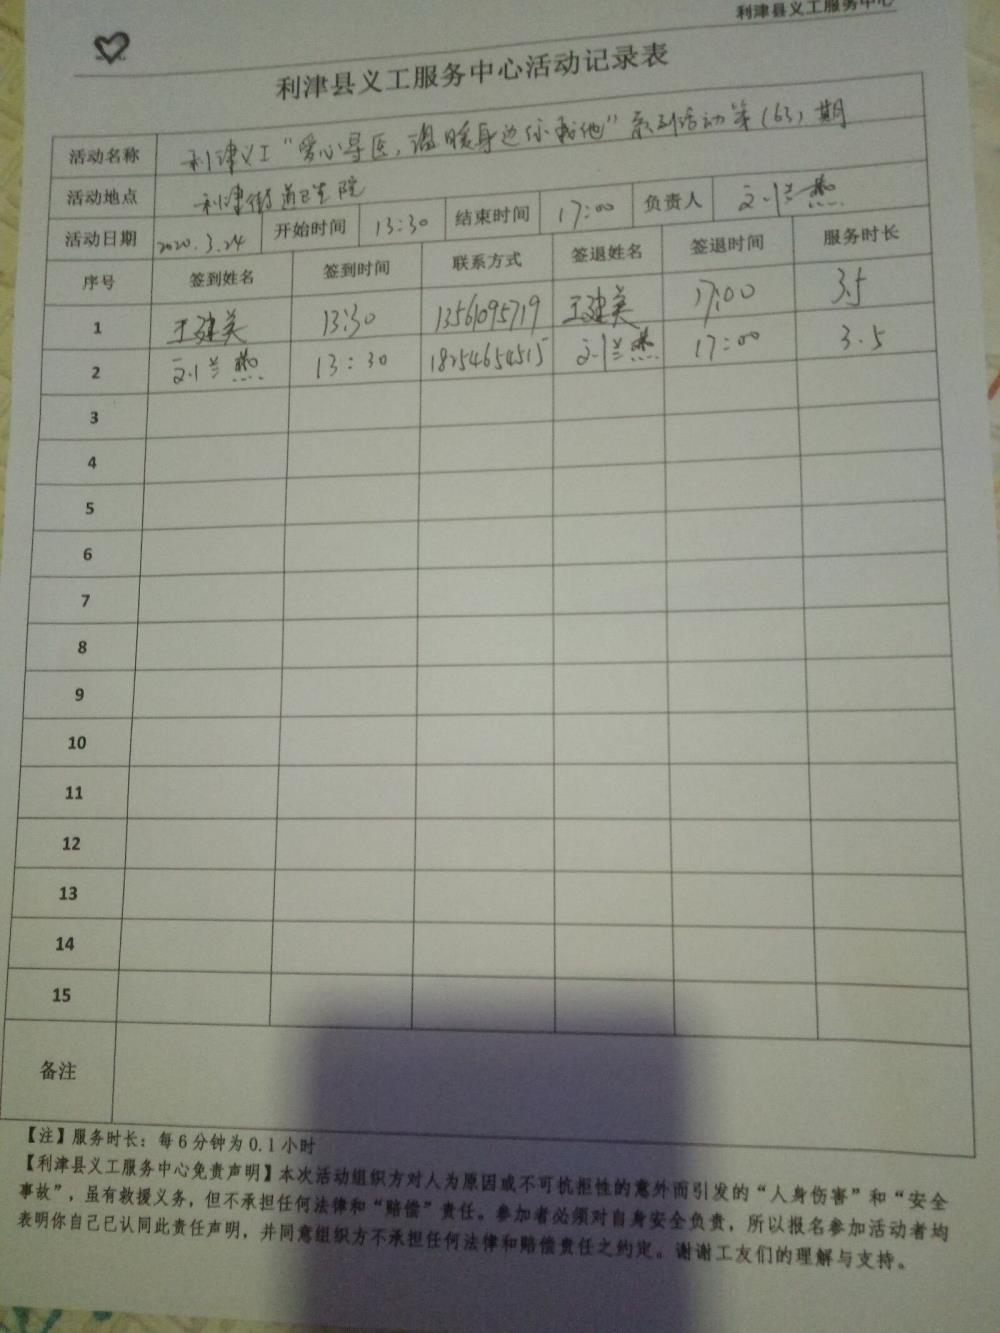 利津县义工服务中心
利津县义工服务中心活动记录表
活动名称 利津义工“爱心导医，温暖身边你我他”系列活动第（63）期
活动地点 利津街道卫生院
活动日期 2020.3.24 开始时间 13:30 结束时间 17:00 负责人 刘兰燕
序号 签到姓名 签到时间 联系方式 签退姓名 签退时间 服务时长
1 王建美 13:30 13561095719 王建美 17:00 3.5
2 刘兰燕 13:30 18254654515 刘兰燕 17:00 3.5
3
4
5
6
7
8
9
10
11
12
13
14
15
备注
【注】服务时长：每6分钟为0.1小时
【利津县义工服务中心免责声明】本次活动组织方对人为原因或不可抗拒性的意外而引发的“人身伤害”和“安全
事故”，虽有救援义务，但不承担任何法律和“赔偿”责任。参加者必须对自身安全负责，所以报名参加活动者均
表明你自己已认同此责任声明，并同意组织方不承担任何法律和赔偿责任之约定。谢谢工友们的理解与支持。